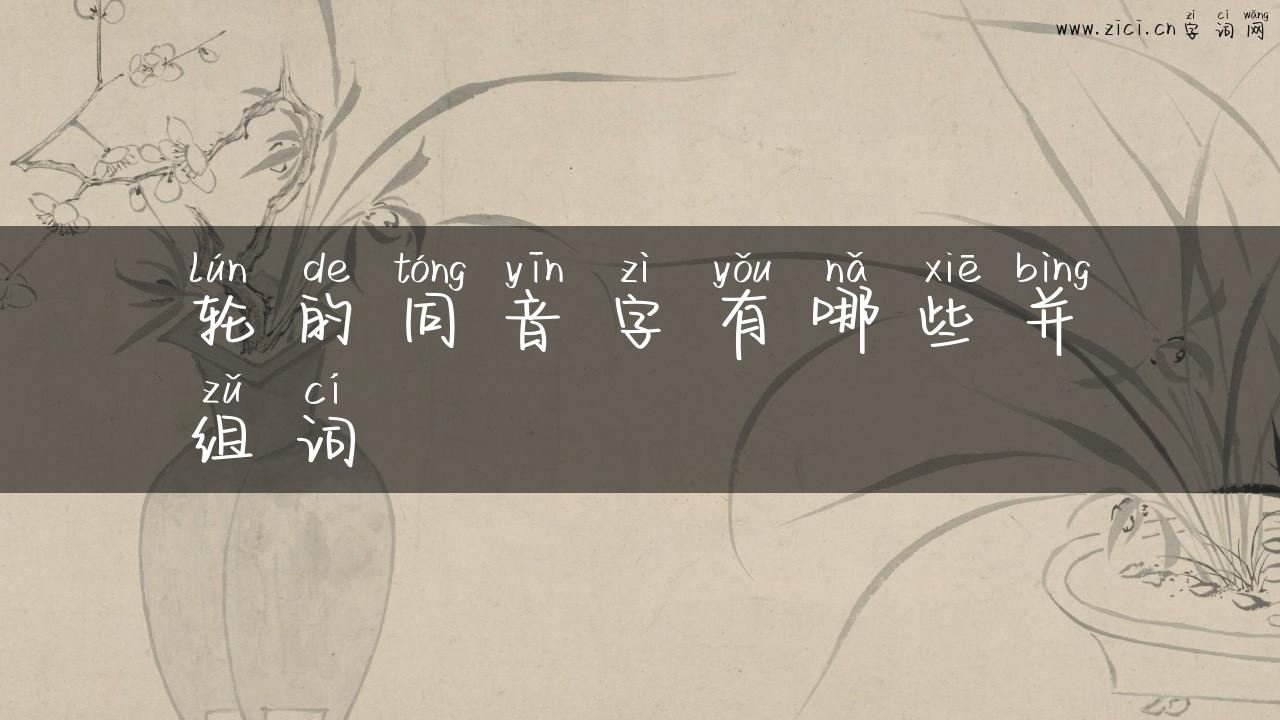 zì cí wǎng
www.zici.cn 字词网
lún de tóng yīn zì yǒu nǎ xiē bìng
轮的同音字有哪些并
zǔ cí
组词